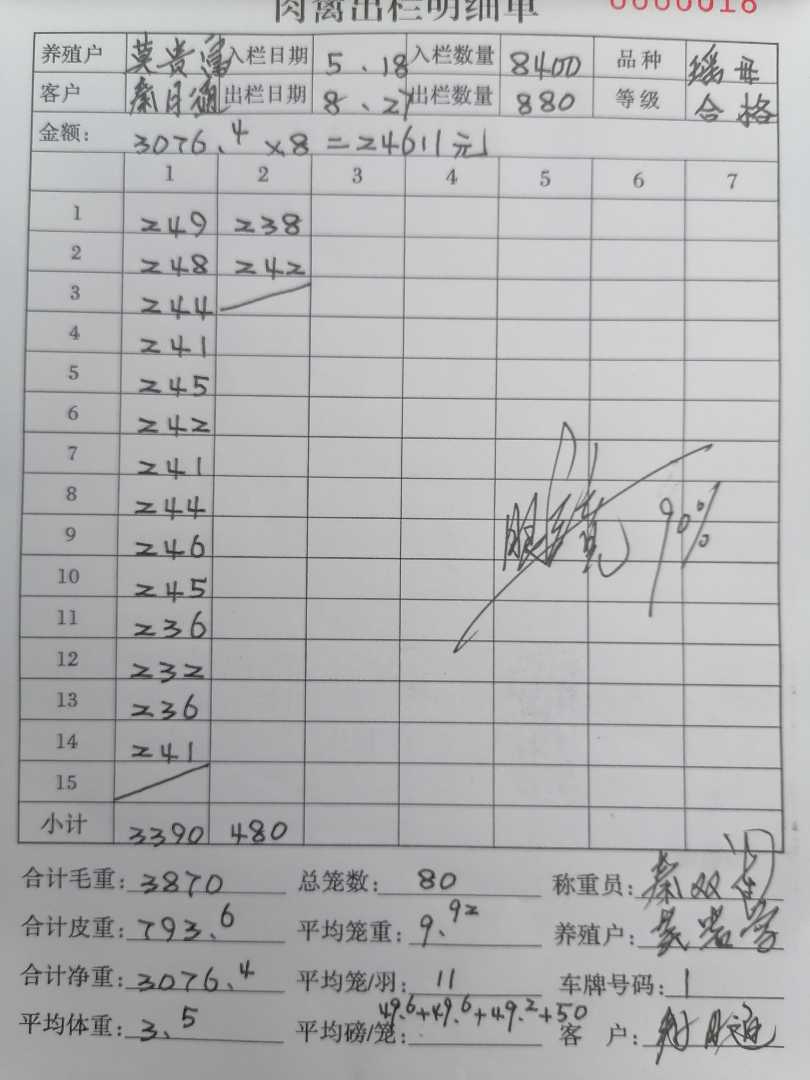 肉禽出栏明细单 0000018
养殖户 莫贵富 入栏日期 5.18 入栏数量 8400 品种 瑶母
客户 秦月通 出栏日期 8.27 出栏数量 880 等级 合格
金额: 3076.4 ×8 =24611元
1 2 3 4 5 6 7
1 249 238
2 248 242
3 244
4 241
5 245
6 242
7 241
8 244
9 246
10 245
11 236
12 232
13 236
14 241
15
90%
小计 3390 480
合计毛重: 3870 总笼数: 80 称重员:
合计皮重: 793.6 平均笼重: 9.92 养殖户:
合计净重: 3076.4 平均笼/羽: 11 车牌号码: 1
平均体重: 3.5 平均磅/笼: 49.6+49.6+49.2+50 客 户: